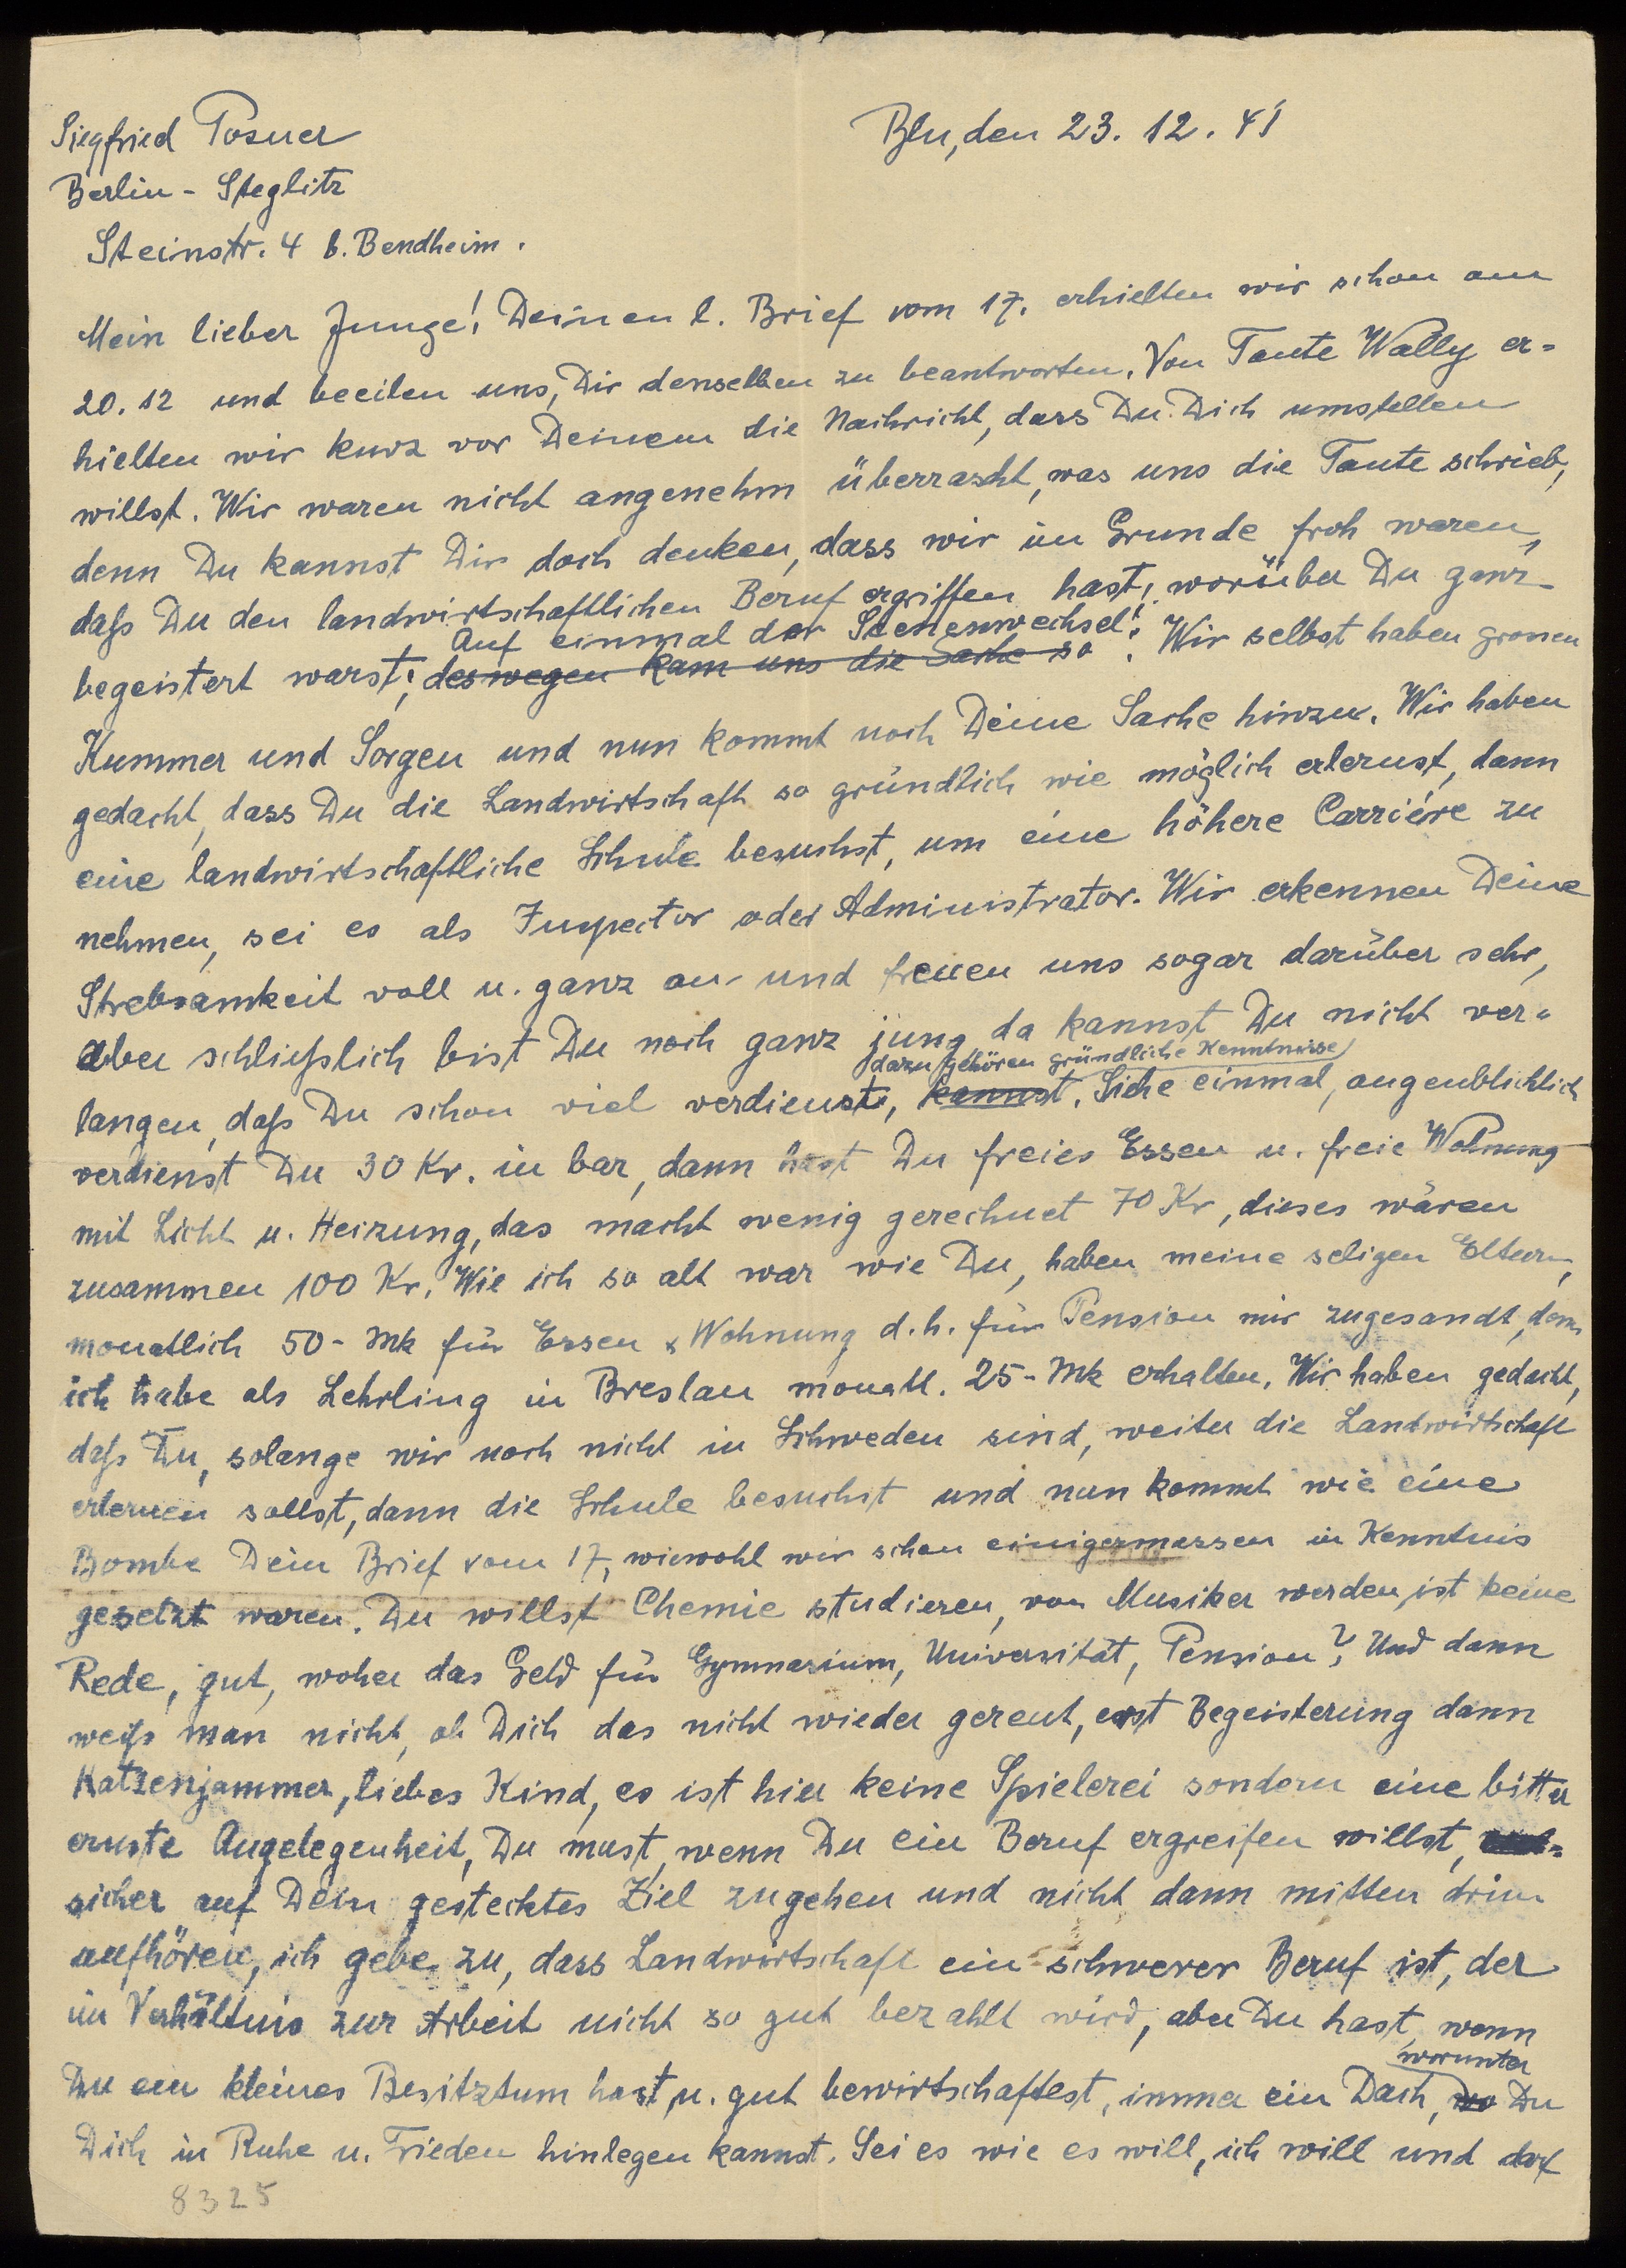 Siegfried Posner
Bln, den 23. 12. 41
Berlin - Steglitz
Steinstr. 4 b. Bendheim.
Mein lieber Junge! Deinen l. Brief vom 17. erhielten wir schon am
20. 12 und beeilen uns, Dir denselben zu beantworten. Von Tante Wally er=
hielten wir kurz vor Deinem die Nachricht, dass Du Dich umstellen
willst. Wir waren nicht angenehm überrascht, was uns die Tante schrieb,
denn Du kannst Dir doch denken, dass wir im Grunde froh waren,
daſs Du den landwirtschaftlichen Beruf ergriffen hast, worüber Du ganz
Auf einmal der Scenenwechsel!
begeistert warst; deswegen kam uns die Sache so. Wir selbst haben grossen
Kummer und Sorgen und nun kommt noch Deine Sache hinzu. Wir haben
gedacht, dass Du die Landwirtschaft so gründlich wie möglich erlernst, dann
eine landwirtschaftliche Schule besuchst, um eine höhere Carriére zu
nehmen, sei es als Inspector oder Administrator. Wir erkennen Deine
Strebsamkeit voll u. ganz an und freuen uns sogar darüber sehr,
aber schlieſslich bist Du noch ganz jung, da kannst Du nicht ver=
dazu gehören gründliche Kenntnisse
langen, daſs Du schon viel verdienst, kannst. Siehe einmal, augenblicklich
verdienst Du 30 Kr. in bar, dann hast Du freies Essen u. freie Wohnung
mit Licht u. Heizung, das macht wenig gerechnet 70 Kr, dieses wären
zusammen 100 Kr. Wie ich so alt war wie Du, haben meine seligen Eltern,
monatlich 50 - Mk für Essen & Wohnung d. h. für Pension mir zugesandt, denn
ich habe als Lehrling in Breslau monatl. 25 - Mk erhalten. Wir haben gedacht,
daſs Du, solange wir noch nicht in Schweden sind, weiter die Landwirtschaft
erlernen sollst, dann die Schule besuchst und nun kommt wie eine
Bombe Dein Brief vom 17, wiewohl wir schon einigermassen in Kenntnis
gesetzt waren. Du willst Chemie studieren, von Musiker werden, ist keine
Rede, gut, woher das Geld für Gymnasium, Universität, Pension? Und dann
weiſs man nicht, ob Dich das nicht wieder gereut, erst Begeisterung dann
Katzenjammer, liebes Kind, es ist hier keine Spielerei sondern eine bitter
ernste Angelegenheit, Du musst, wenn Du ein Beruf ergreifen willst,
sicher auf Dein gestecktes Ziel zugehen und nicht dann mitten drin
aufhören, ich gebe zu, dass Landwirtschaft ein schwerer Beruf ist, der
im Verhältnis zur Arbeit nicht so gut bezahlt wird, aber Du hast, wenn
worunter
Du ein kleines Besitztum hast, u. gut bewirtschaftest, immer ein Dach, wo Du
Dich in Ruhe u. Frieden hinlegen kannst. Sei es wie es will, ich will und darf
8325